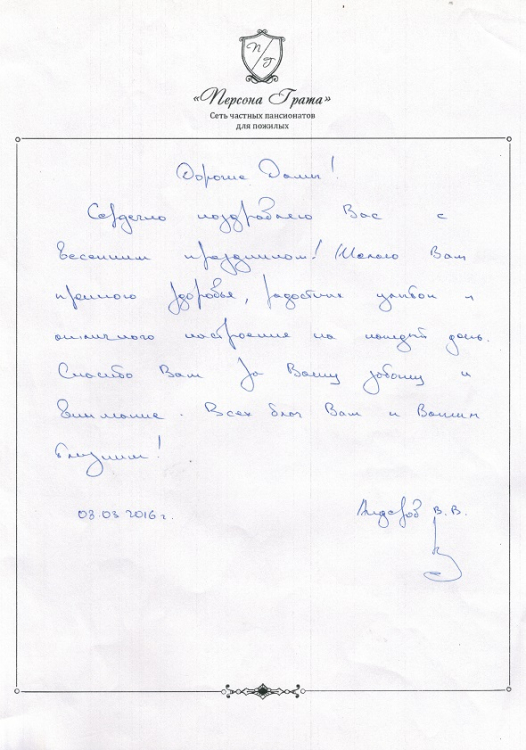 П Г
«Персона Грата»
Сеть частных пансионатов
для пожилых
Дорогие Дамы!
Сердечно поздравляю Вас с
весенним праздником! Желаю Вам
крепкого здоровья, радостных улыбок и
отличного настроения на каждый день.
Спасибо Вам за Вашу заботу и
внимание. Всех благ Вам и Вашим
близким!
03.03.2016г.
В. В.